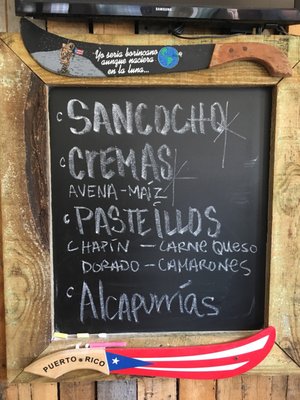 SAMSUNG
Yo sería borincano
aunque naciera
en la luna...
SANCOCHO
CREMAS
AVENA-MAÍZ
PASTEÍLLOS
CHAPÍN - CARNE QUESO
DORADO - CAMARONES
Alcapurrías
PUERTO RICO